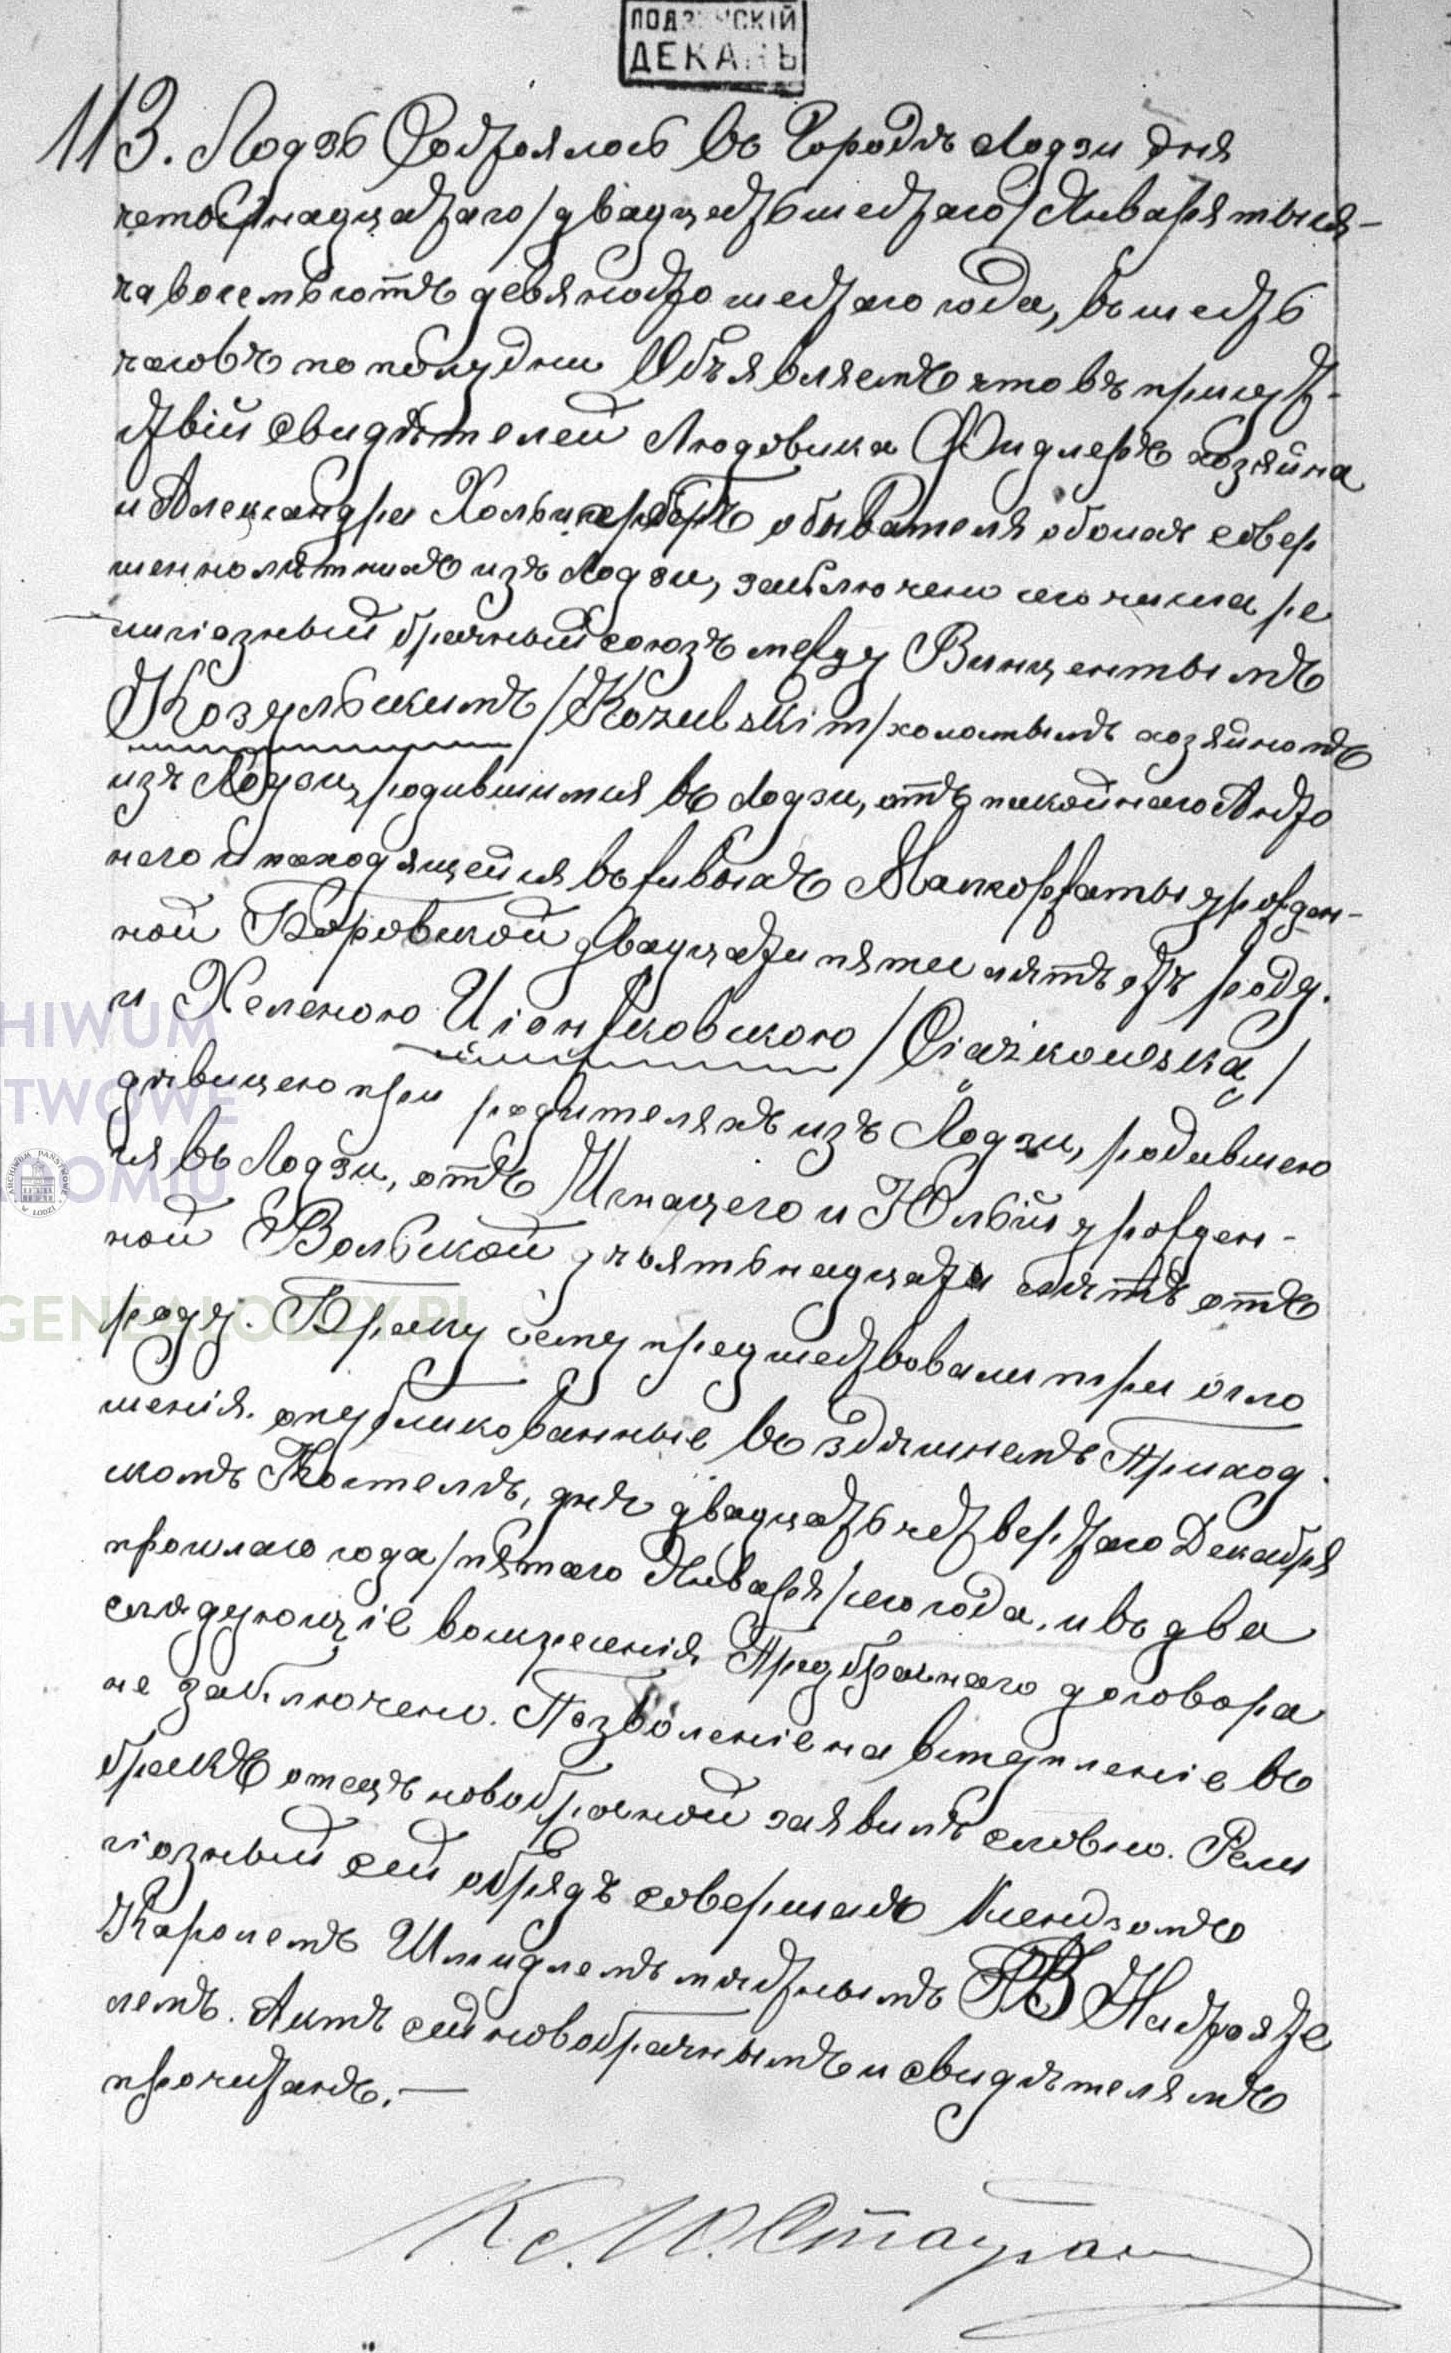 ЛОДЗИНСКІЙ
ДЕКАНЪ
113. Лодзь Состоялось въ Городѣ Лодзи дня
четырнадцатаго/двадцать шестаго/Января тыся-
ча восемьсотъ девяносто шестаго года, въ шесть
часовъ по полудни Объявляемъ что въ присут-
ствіи свидѣтелей Людвика Фидлеръ хозяина
и Александра обывателя обоихъ совер
шеннолѣтнихъ изъ Лодзи, заключено сего числа ре
лигіозный брачный союзъ между Винцентымъ
Козульскимъ/Kozulskim/холостымъ хозяиномъ
изъ Лодзи, родившимся въ Лодзи, отъ покойнаго Анто
него и находящейся въ живыхъ Малгоржаты урожден-
ной Боровской двадцати пяти лѣтъ отъ роду.
и Хеленою Ціонжковскою/Ciążkowską/
дѣвицею при родителяхъ изъ Лодзи, родившею
ся въ Лодзи, отъ Игнацего и Юльіи урожден-
ной Вольской девятьнадцати лѣтъ отъ
роду. Браку сему предшествовали три огло
шенія. опубликованныя въ здѣшнемъ Приход
скомъ Костелѣ, днѣ двадцать четвертаго Декабря
прошлаго года/пятаго Января/сего года, и въ два
слѣдующіе воскресенія Предбрачнаго договора
не заключено. Позволеніе на вступленіе въ
бракъ отецъ новобрачной заявилъ словно. Рели
гіозный сей обрядъ совершенъ Ксендзомъ
Каролемъ Шмидлемъ мѣстнымъ Настояте
лемъ. Актъ сей новобрачнымъ и свидѣтелямъ
прочитанъ.—